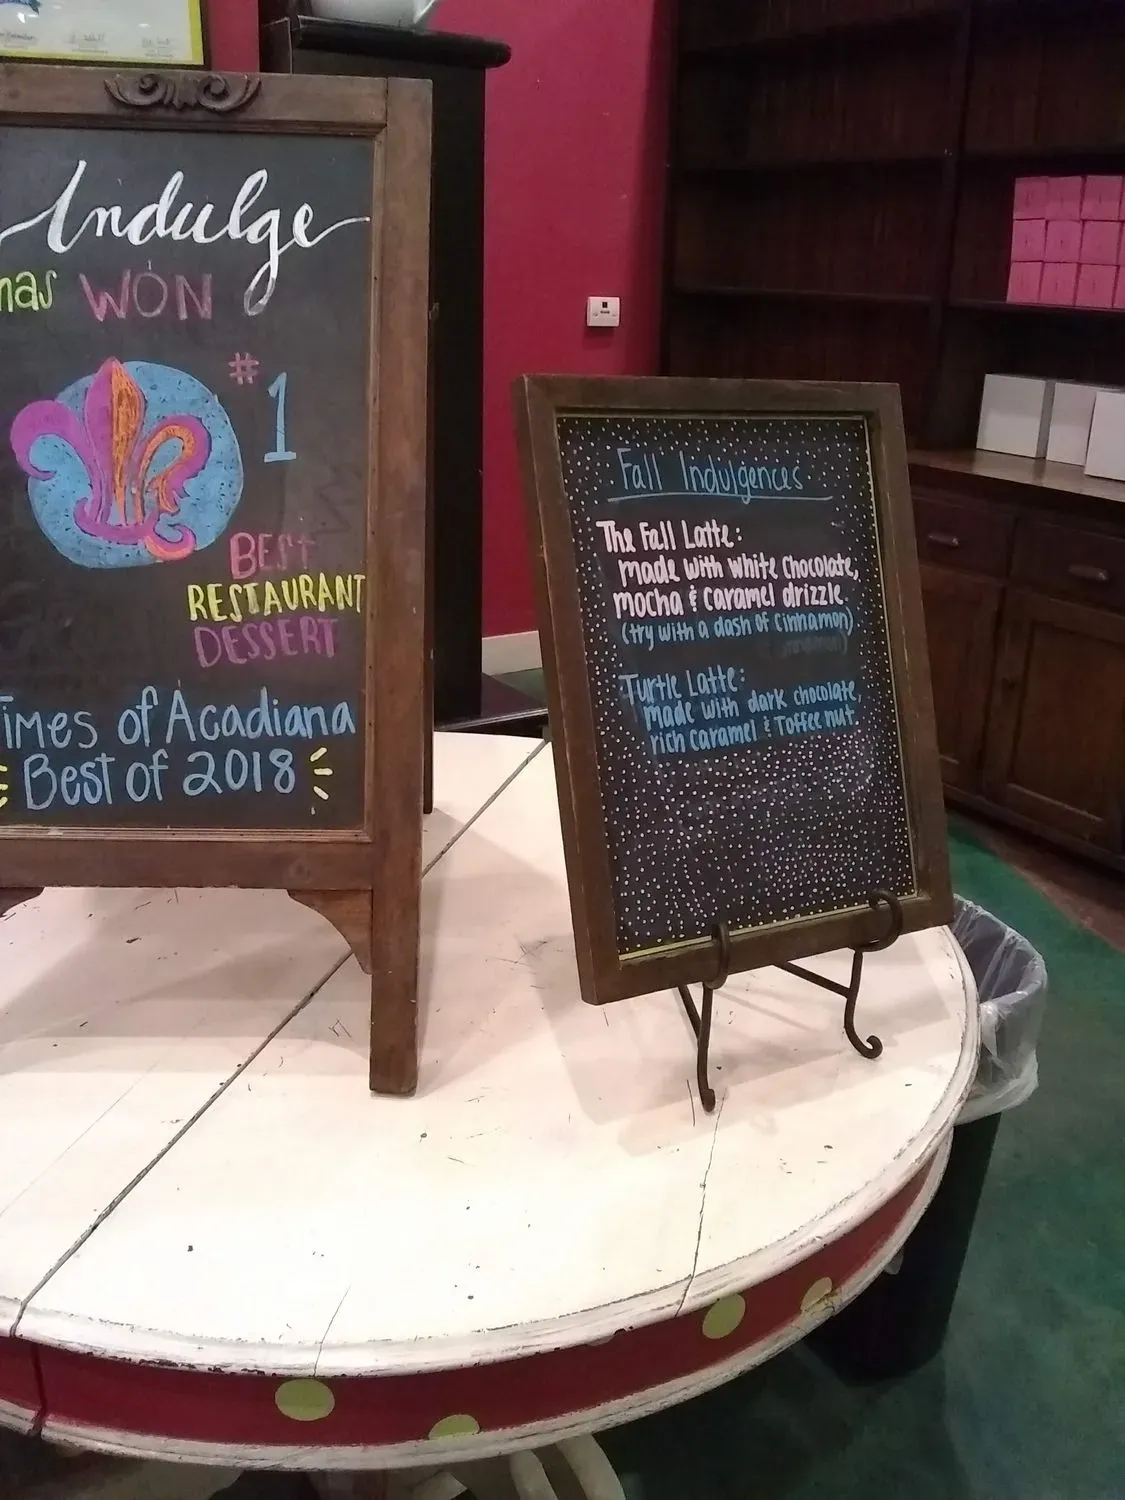 Indulge
has WON
#1
BEST
RESTAURANT
DESSERT
Times of Acadiana
Best of 2018
Fall Indulgences
The Fall Latte:
made with white chocolate,
mocha & caramel drizzle
(try with a dash of cinnamon)
Turtle Latte:
made with dark chocolate,
rich caramel & Toffee nut.